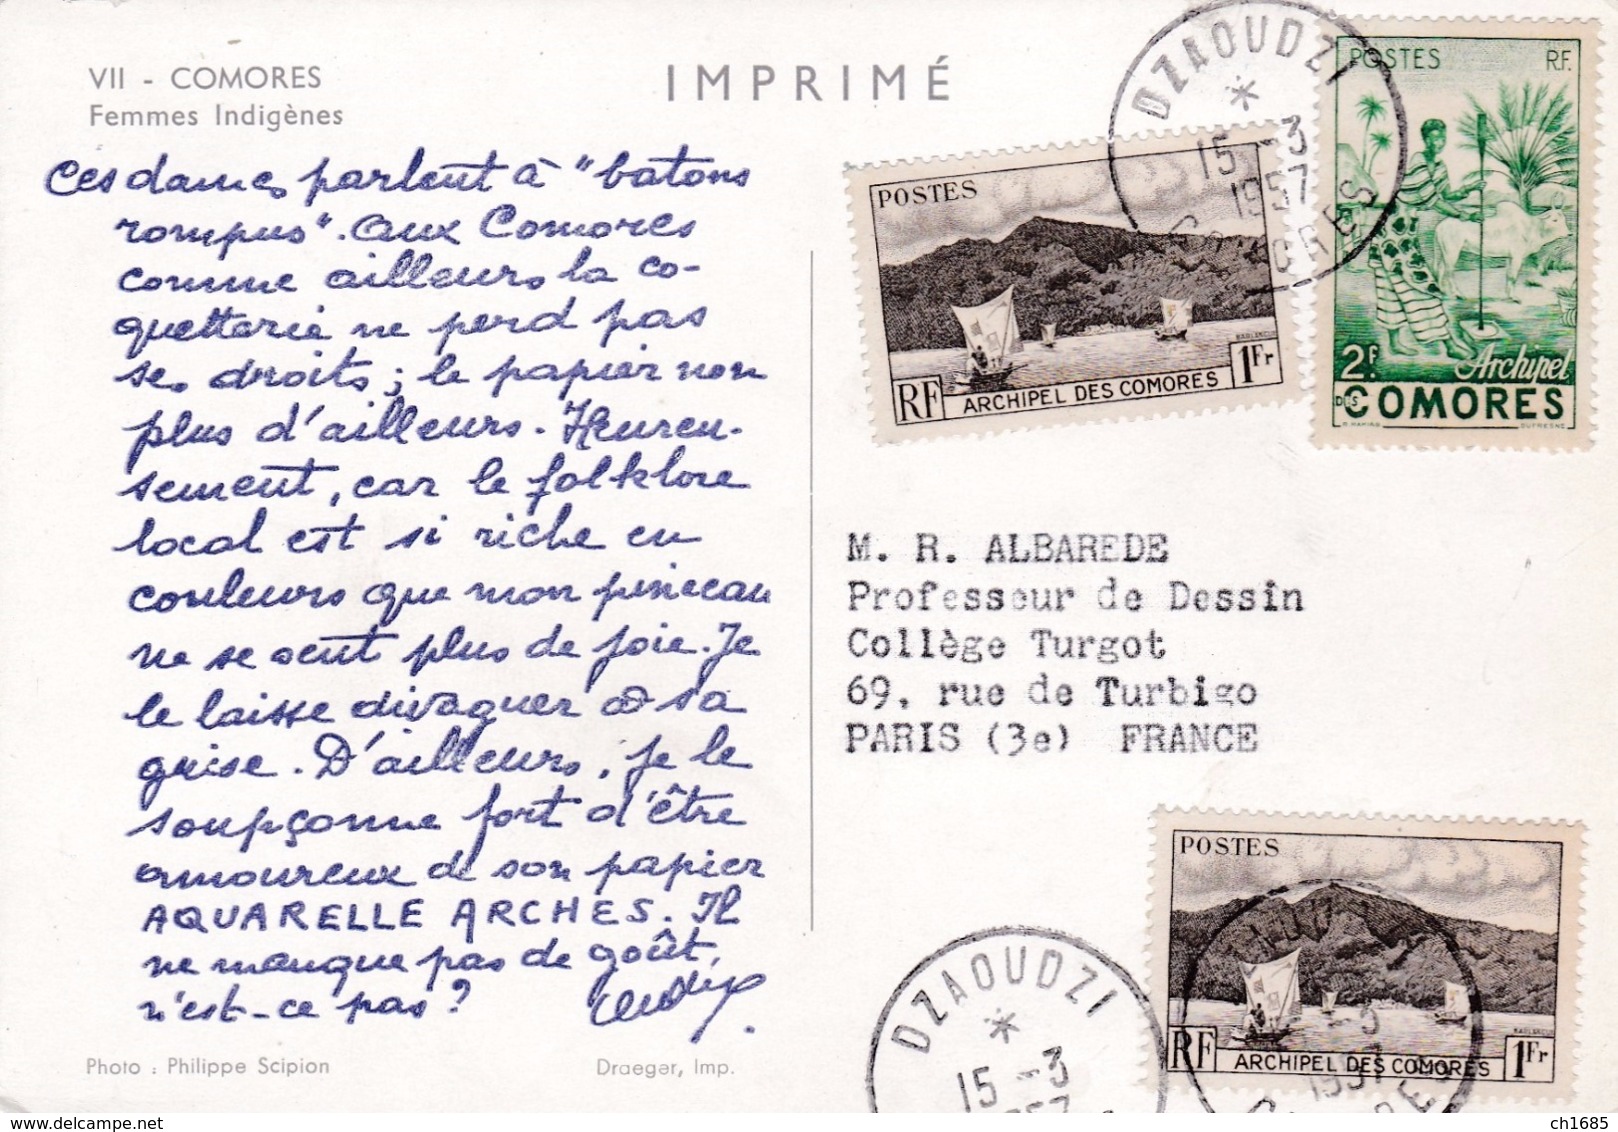 VII - COMORES
Femmes Indigènes
IMPRIMÉ
Ces dames parlent à "batons
rompus". Aux Comores
comme ailleurs la co-
quetterie ne perd pas
ses droits; le papier non
plus d'ailleurs. Heureu-
sement, car le folklore
local est si riche en
couleurs que mon pinceau
ne se sent plus de joie. Je
le laisse divaguer à sa
guise. D'ailleurs, je le
soupçonne fort d'être
amoureux de son papier
AQUARELLE ARCHES. Il
ne manque pas de goût,
n'est-ce pas?
Photo : Philippe Scipion
Draeger, Imp.
DZAOUDZI
15 - 3
1957
COMORES
POSTES
RF
ARCHIPEL DES COMORES
1Fr
POSTES
RF.
2F.
Archipel
DES COMORES
DUFRESNE
M. R. ALBAREDE
Professeur de Dessin
Collège Turgot
69, rue de Turbigo
PARIS (3e) FRANCE
POSTES
RF
ARCHIPEL DES COMORES
1Fr
DZAOUDZI
15 - 3
1957
-3
1957
delcampe.net
ch1685